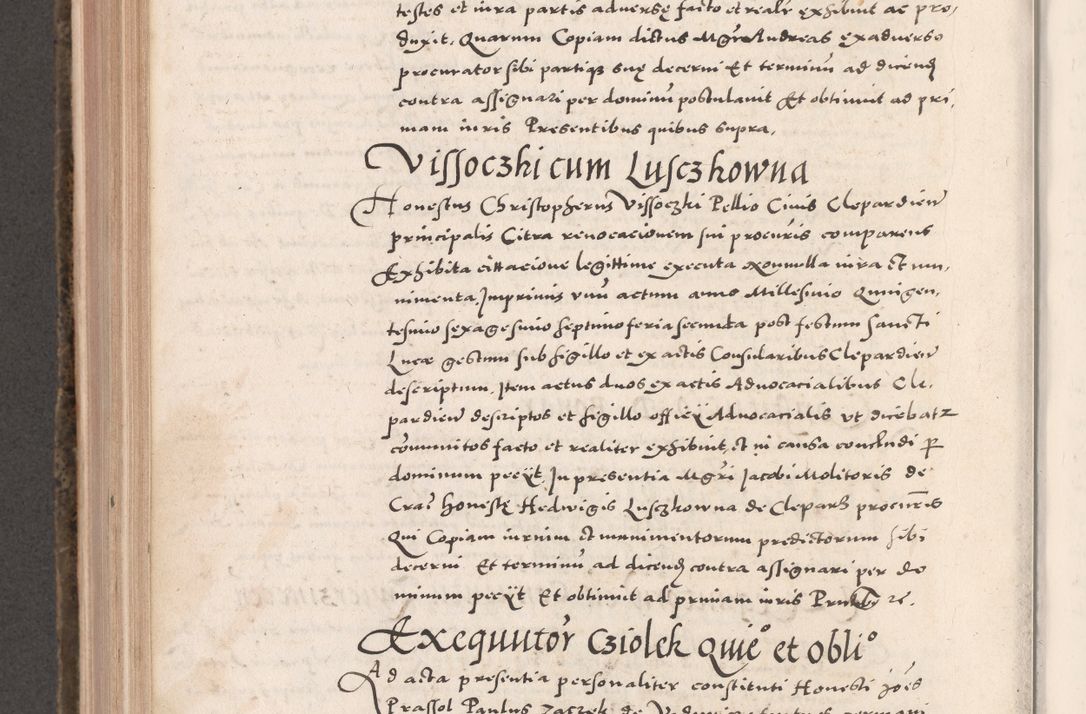 testes et iura partis adverse facto et realr exhibuit ac pro,
duxit. Quarum Copiam dictus Mgr Andreas ex adverso
procurator sibi partiq3 sue decerni Et terminu ad dicend
contra assignari per dominu postulavit Et obtinuit ad pri,
mam iuris Presentibus quibus supra,
Vissoczki cum Lusczkowna
Honestus Christopherus Vissoczki Pellio Civis Clepardien
principalis Citra revocacionem sui procuris comparens
Exhibita cittacione legittime executa nonnulla iura et mu,
nimenta. Imprimis unu actum anno Millesimo Quingen,
tesimo sexagesimo septimo feria secunda post festum Sancti
Lucae gestum sub sigillo et ex actis Consularibus Clepardien
descriptum, Item actus duos ex actis Advocacialibus Cle,
pardien descriptos et sigillo officÿ Advocacialis ut dicebat
comunitos facto et realiter exhibuit, et in causa concludi p
dominum petÿt, In presentia Mgri Jacobi Molitoris de
Cra honeste Hedwigis Lusczkowna de Cleparz procuris
Qui Copiam iurium et munimentorum predictorum sibi
decerni Et terminu ad dicend contra assignari per do
minum petÿt Et obtinuit ad primam iuris
Exequutor Cziolek Quie° et obli°
Ad acta presentia personaliter constituti Honesti Joes
Prassol Paulus Zaczek de